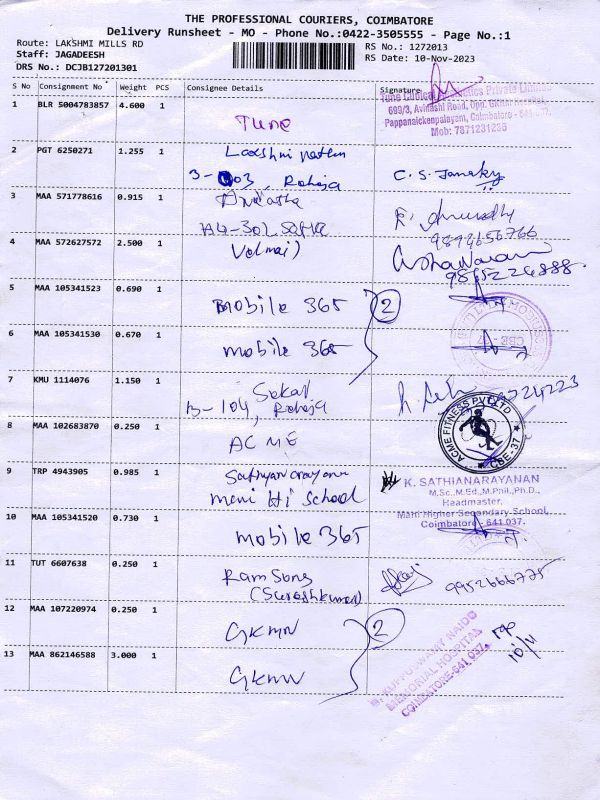 THE PROFESSIONAL COURIERS, COIMBATORE
Delivery Runsheet - MO - Phone No.:0422-3505555 - Page No.:1
Route: LAKSHMI MILLS RD
RS No.: 1272013
Staff: JAGADEESH
RS Date: 10-Nov-2023
DRS No.: DCJB127201301
S No Consignment No Weight PCS Consignee Details Signature
1 BLR 5004783857 4.600 1
Tune
699/3, Avinashi Road, Opp. GKNM Hospital,
Pappanaickenpalayam, Coimbatore - 641 037.
Mob: 7871231235
2 PGT 6250271 1.255 1 Laxshmi
Raheja
C. S. Janaky
3 MAA 571778616 0.915 1
A4-302
9894656766
4 MAA 572627572 2.500 1
5 MAA 105341523 0.690 1 mobile 365 2
6 MAA 105341530 0.670 1 mobile 365
7 KMU 1114076 1.150 1
B-104, Raheja
8 MAA 102683870 0.250 1 ACME
ACME FITNESS PVT LTD
CBE-37
9 TRP 4943905 0.985 1 Sathiyanarayanan
Mani Hi School
K. SATHIANARAYANAN
M.Sc.,M.Ed.,M.Phil.,Ph.D.,
Headmaster,
Mani Higher Secondary School,
Coimbatore - 641 037.
10 MAA 105341520 0.730 1 mobile 365
11 TUT 6607638 0.250 1 Ram Sons
(Sureshkumar)
12 MAA 107220974 0.250 1 GKMN 2
13 MAA 862146588 3.000 1 GKMN
G. KUPPUSWAMY NAIDU
MEMORIAL HOSPITAL
COIMBATORE-641 037.
10/11